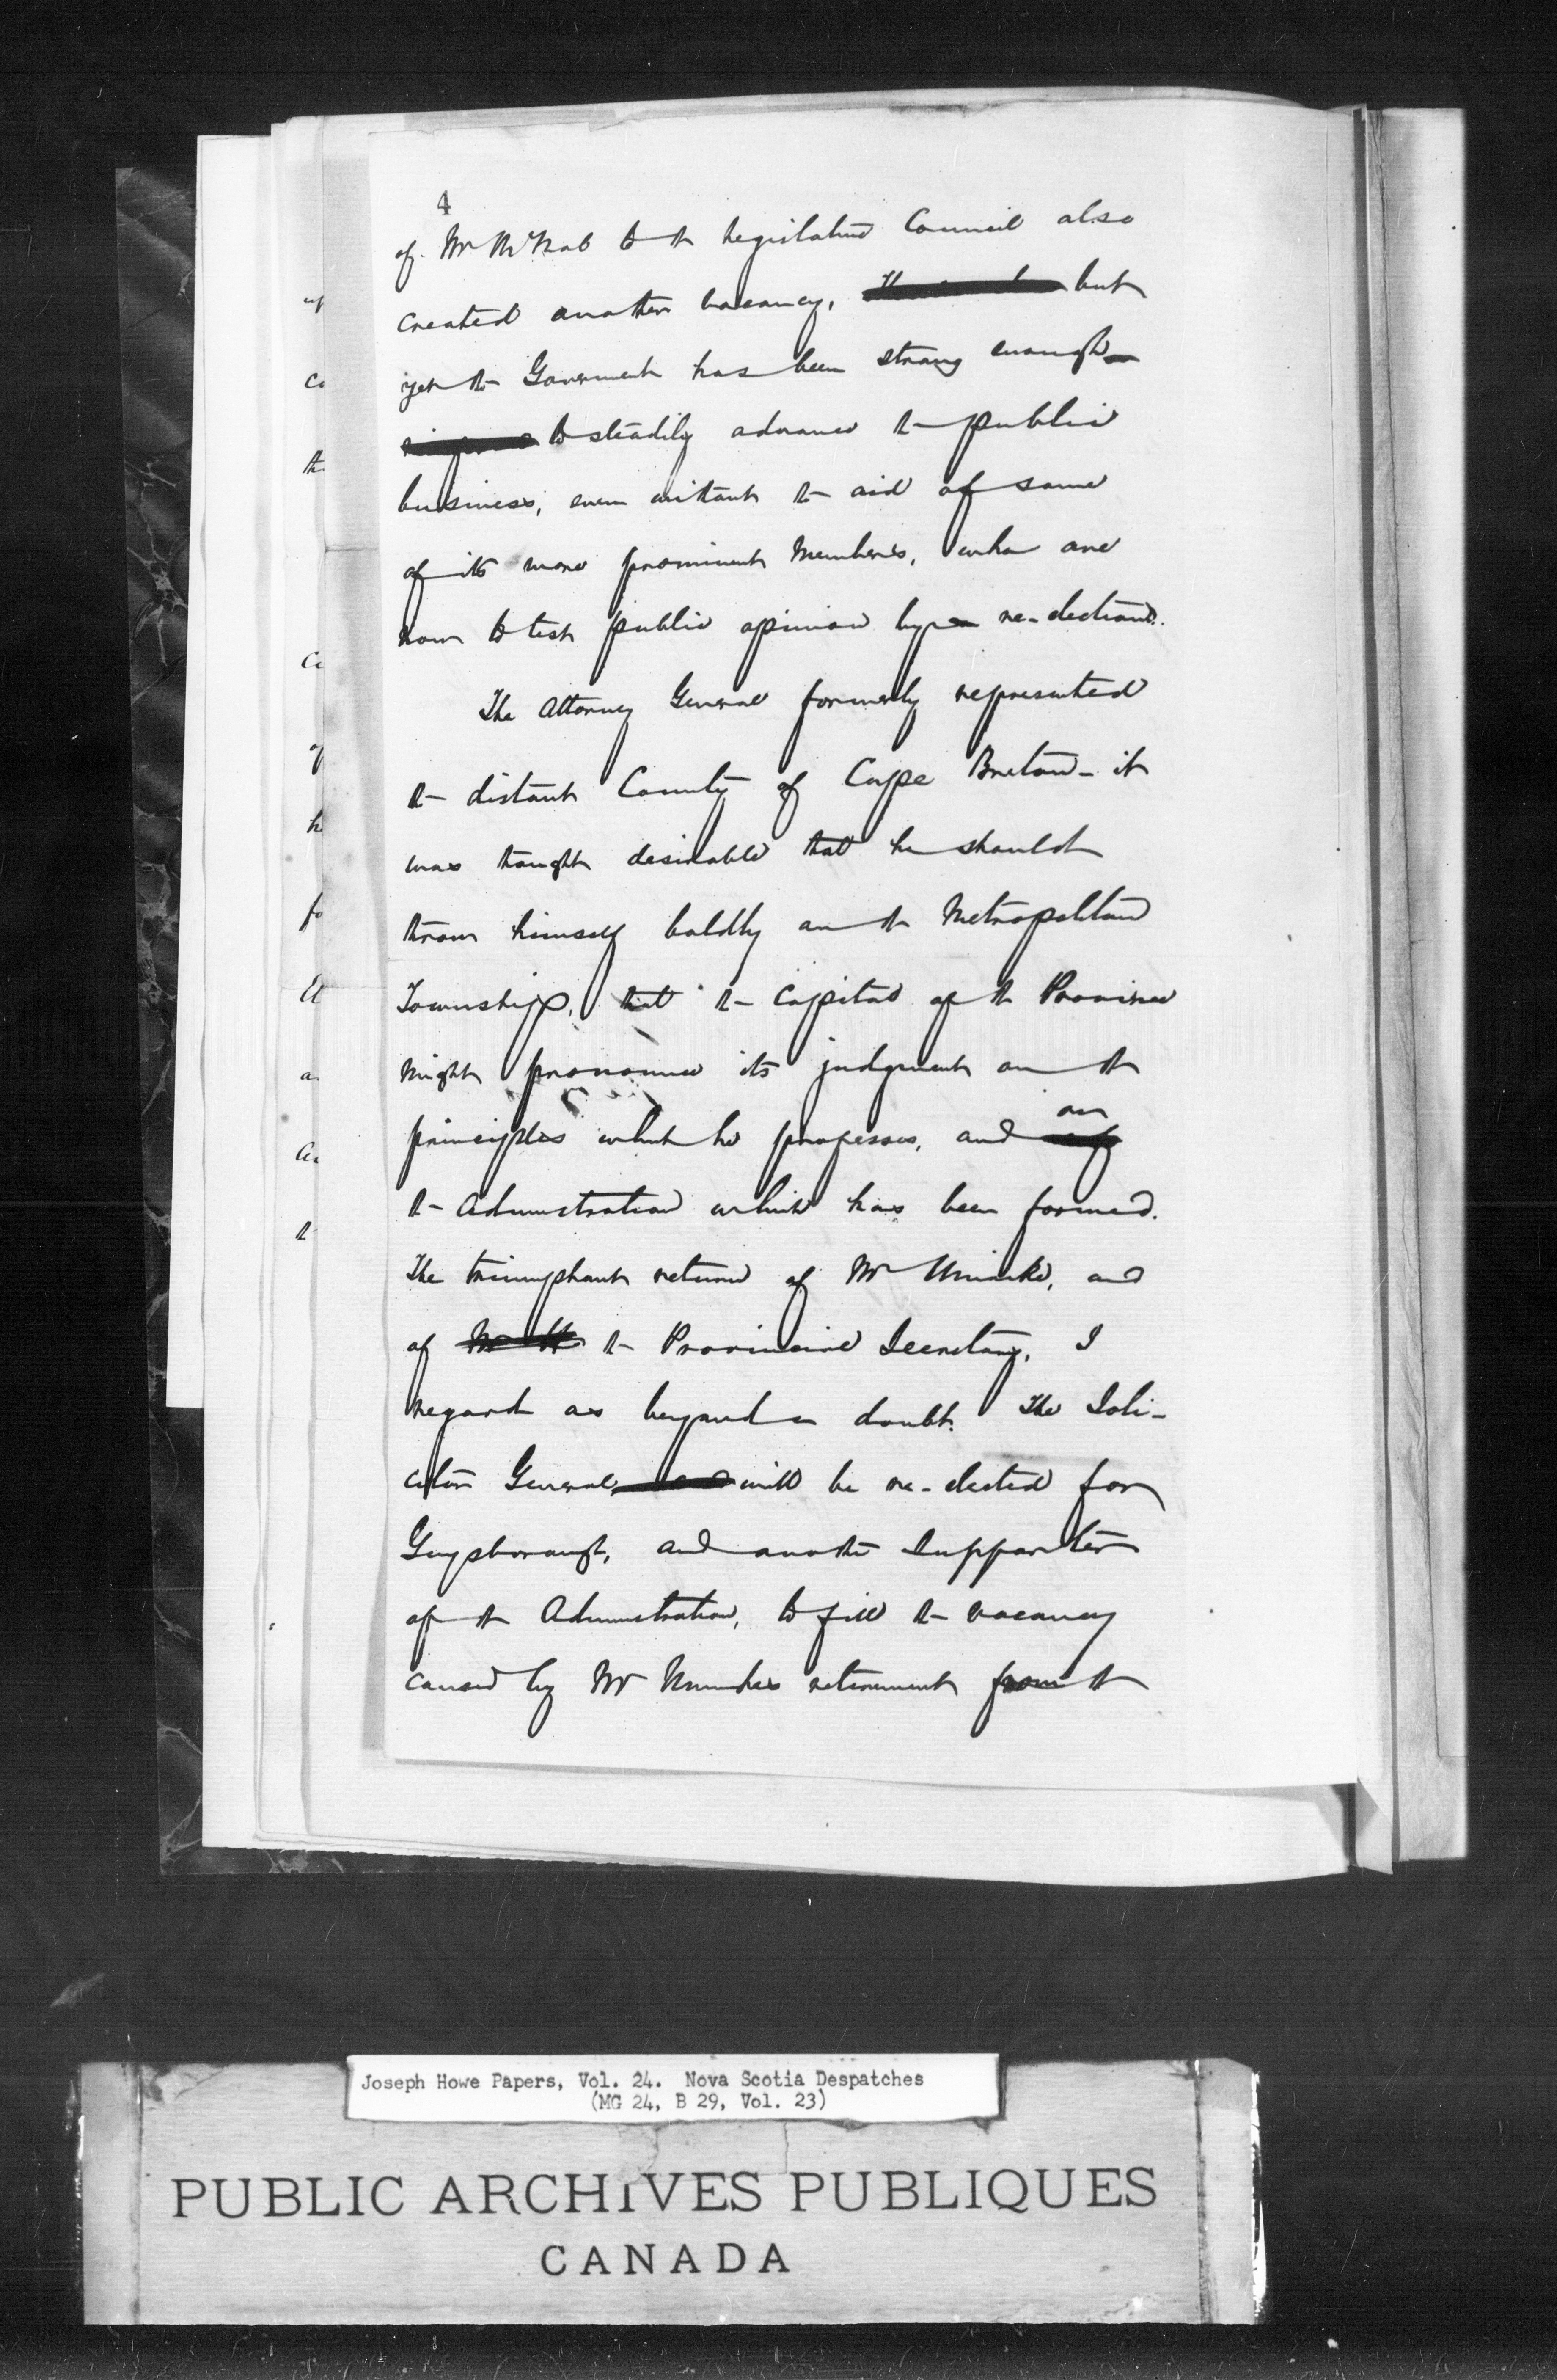 4
of Mr McNab to the Legislative Council also
created another vacancy, but
yet the Goverment has been strong enough
to steadily advance the public
business, even without the aid of some
of its more prominent Members, who are
now to test public opinion by re-elections.
The Attorney General formerly represented
the distant County of Cape Breton - it
was thought desirable that he should
throw himself boldly on the Metropolitan
Township, that the Capital of the Province
might pronounce its judgment on the
principles which he professes, and on
the Administration which has been formed.
The triumphant return of Mr Uniacke, and
of the Provincial Secretary, I
regard as beyond a doubt. The Soli-
citor General will be re-elected for
Guysborough, and another Supporter
of the Administration, to fill the vacancy
caused by Mr retirement from the
up
co
th
co
of
h
fo
a
th
Joseph Howe Papers, Vol. 24. Nova Scotia Despatches
(MG 24, B 29, Vol. 23)
PUBLIC ARCHIVES PUBLIQUES
CANADA